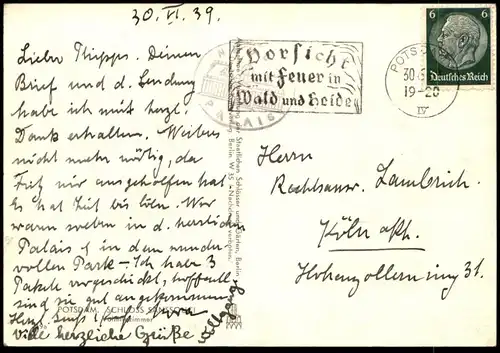 30. VI. 39.
Liebe Thipps. Deinen
Brief und d. Sendung
habe ich mit herzl.
Dank erhalten. Weiteres
nicht mehr nötig, da
Fritz mir ausgeholfen hat
Es hat Zeit bis Wir
waren soeben in d. herrlichen
Palais & in dem wunder-
vollen Park – Ich habe 3
Pakete vorgeschickt, hoffentl.
sind sie gut angekommen
Herzl.
viele herzliche Grüße Wolfgang.
POTSDAM, SCHLOSS SANSSOUCI
Staatlichen Schlösser und Gärten, Berlin
Berlin W 35 · Nachdruck verboten
PALAIS
Vorsicht
mit Feuer in
Wald und Heide
POTS
30.6
19-20
IV
6 6
Deutsches Reich
Herrn
Rechtsanw. Lambrich.
Köln a/Rh.
Hohenzollernring 31.